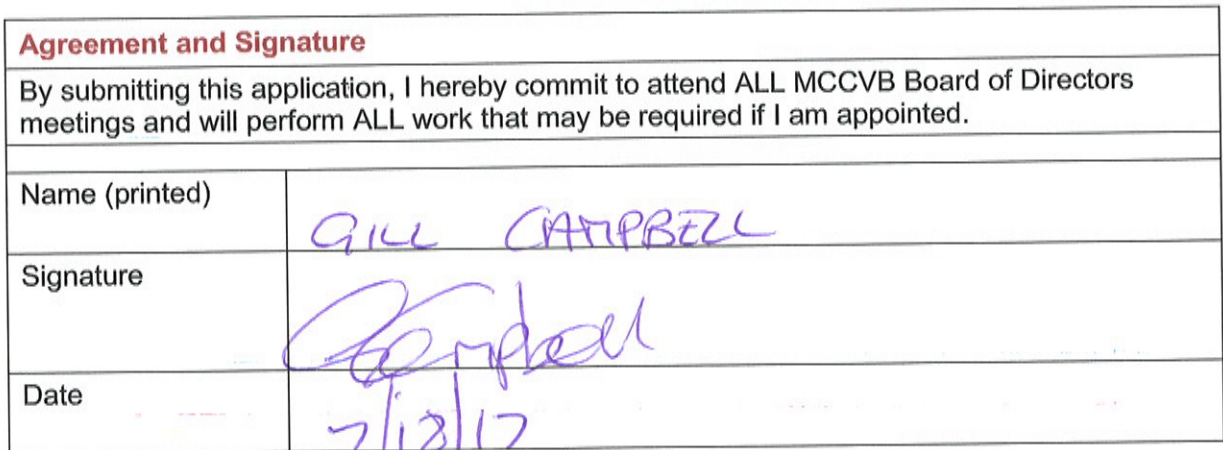 Agreement and Signature
By submitting this application, I hereby commit to attend ALL MCCVB Board of Directors
meetings and will perform ALL work that may be required if I am appointed.
Name (printed)
GILL CAMPBELL
Signature
Campbell
Date
7/13/17